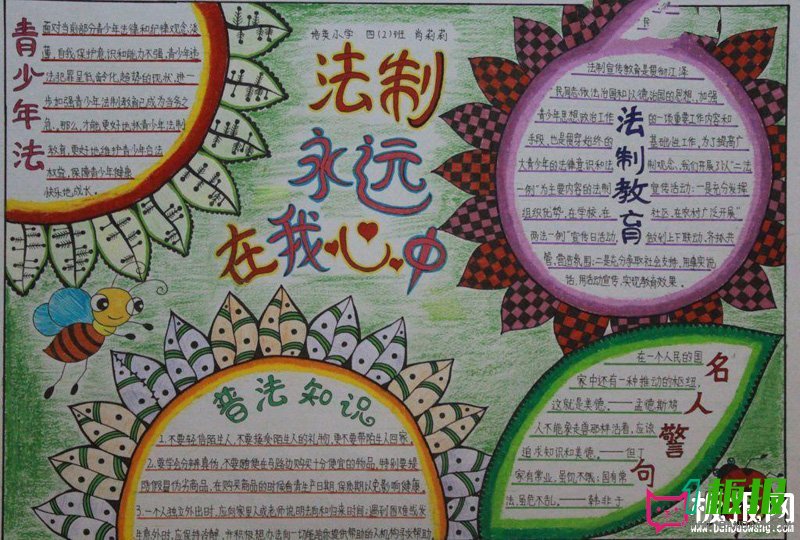 培英小学 四(2)班 肖莉莉
法制
永远
在我心中
青少年法
面对当前部分青少年法律和纪律观念淡
薄,自我保护意识和能力不强,青少年违
法犯罪呈低龄化趋势的现状,进一
步加强青少年法制教育已成为当务之
急。那么,才能更好地抓青少年法制
教育,更好地维护青少年合法
权益,保障青少年健康
快乐地成长。
法制教育
法制宣传教育是贯彻江泽
民同志依法治国和以德治国的思想、加强
青少年思想政治工作的一项重要工作内容和
手段,也是贯穿始终的基础性工作,为了提高广
大青少年的法律意识和法制观念,我们开展了以"二法
一例"为主要内容的法制宣传活动:一是充分发挥
组织优势,在学校、在社区、在农村广泛开展"
两法一例"宣传日活动,做到上下联动、齐抓共
管、营造氛围;二是充分争取社会支持,用真实说
话,用活动宣传,实现教育效果。
普法知识
1.不要轻信陌生人,不要接受陌生人的礼物,更不要带陌生人回家。
2.要学会分辨真伪,不要随便在马路边购买十分便宜的物品,特别要提
防假冒伪劣商品,在购买商品的时候看生产日期、保质期以免影响健康
3.一个人独立外出时,应向家里人或老师说明去向和归来时间;遇到困难或发
生意外时,应保持清醒,并积极想办法向一切能给你提供帮助的人、机构寻求帮助
名人警句
在一个人民的国
家中还有一种推动的枢纽,
这就是美德。——孟德斯鸠
人不能象走兽那样活着,应该
追求知识和美德。——但丁
家有常业,虽饥不饿;国有常
法,虽危不乱。——韩非子
板报网
www.banbaowang.com